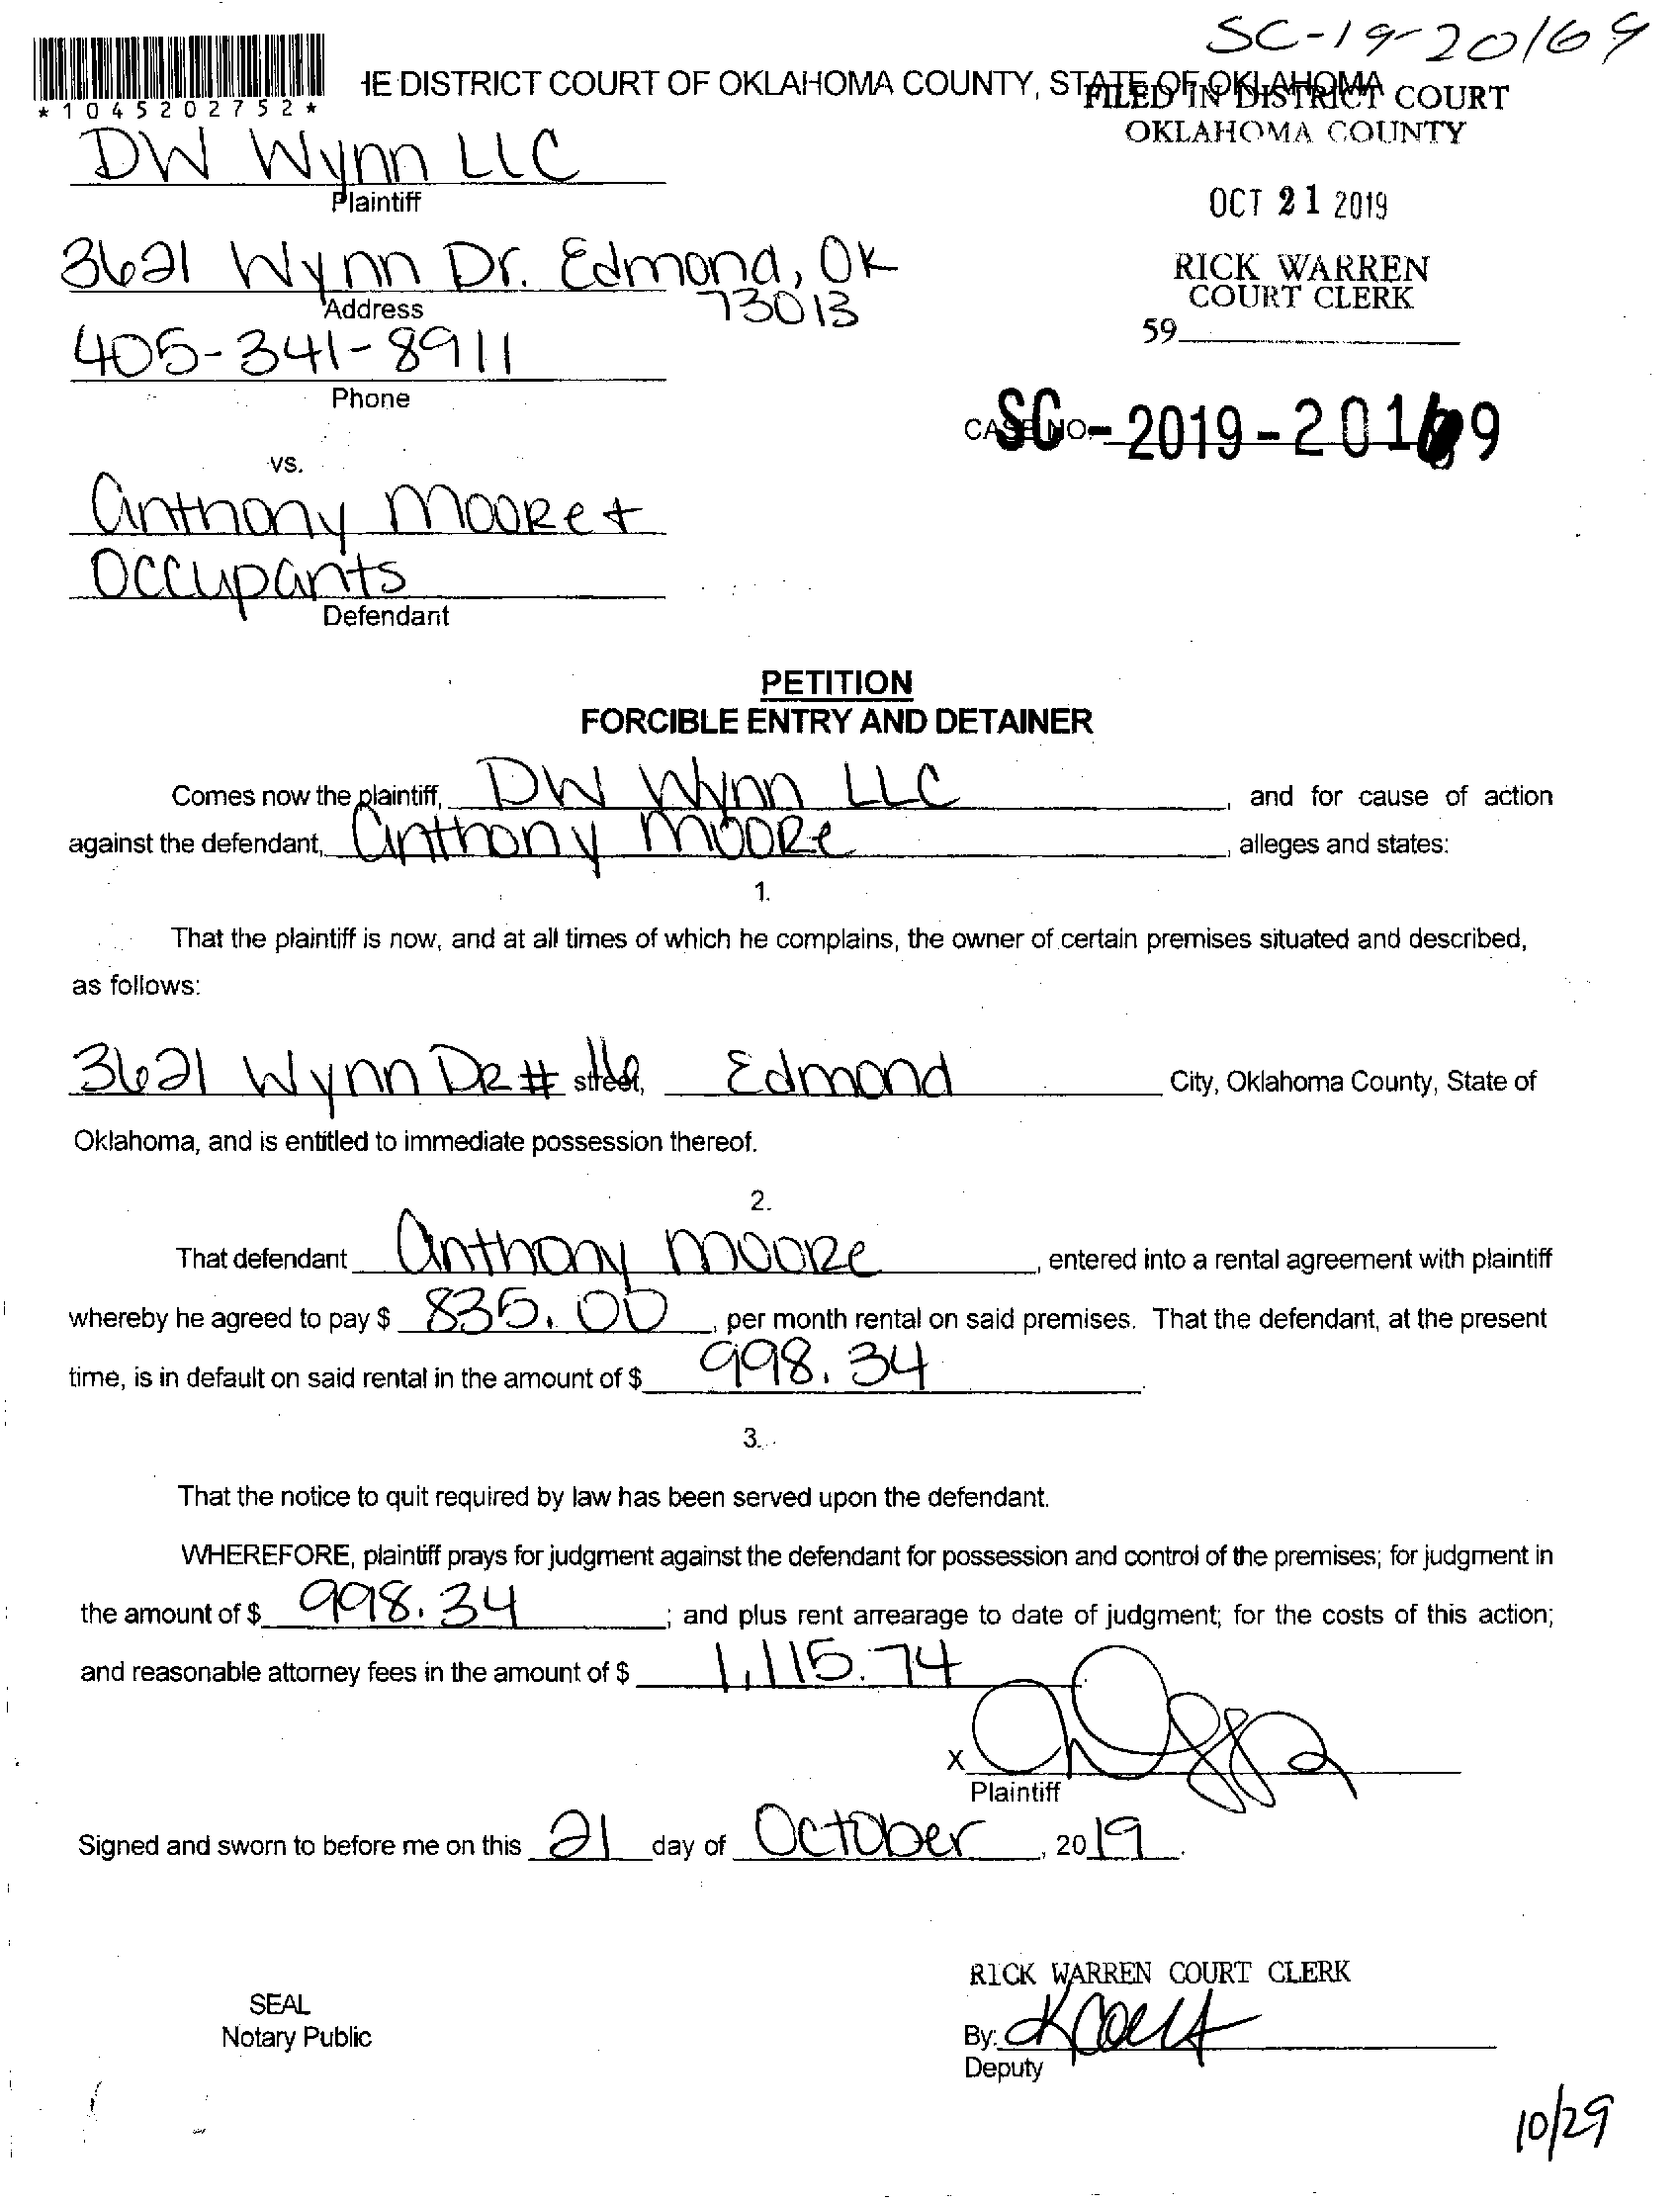 SC-19-20169
*1045202752*
IE DISTRICT COURT OF OKLAHOMA COUNTY, STATE OF OKLAHOMA
FILED IN DISTRICT COURT
OKLAHOMA COUNTY
DW Wynn LLC
Plaintiff
OCT 21 2019
3621 Wynn Dr. Edmond, OK
73013
Address
RICK WARREN
COURT CLERK
59
405-341-8911
Phone
CASE NO.
SC-2019-20169
vs.
Anthony Moore +
Occupants
Defendant
PETITION
FORCIBLE ENTRY AND DETAINER
Comes now the plaintiff, DW Wynn LLC, and for cause of action
against the defendant, Anthony Moore, alleges and states:
1.
That the plaintiff is now, and at all times of which he complains, the owner of certain premises situated and described,
as follows:
3621 Wynn DR # 116 street, Edmond City, Oklahoma County, State of
Oklahoma, and is entitled to immediate possession thereof.
2.
That defendant Anthony Moore, entered into a rental agreement with plaintiff
whereby he agreed to pay $ 835.00, per month rental on said premises. That the defendant, at the present
time, is in default on said rental in the amount of $ 998.34.
3.
That the notice to quit required by law has been served upon the defendant.
WHEREFORE, plaintiff prays for judgment against the defendant for possession and control of the premises; for judgment in
the amount of $ 998.34; and plus rent arrearage to date of judgment; for the costs of this action;
and reasonable attorney fees in the amount of $ 1,115.74.
X
Plaintiff
Signed and sworn to before me on this 21 day of October, 2019.
RICK WARREN COURT CLERK
SEAL
Notary Public
By:
Deputy
10/29